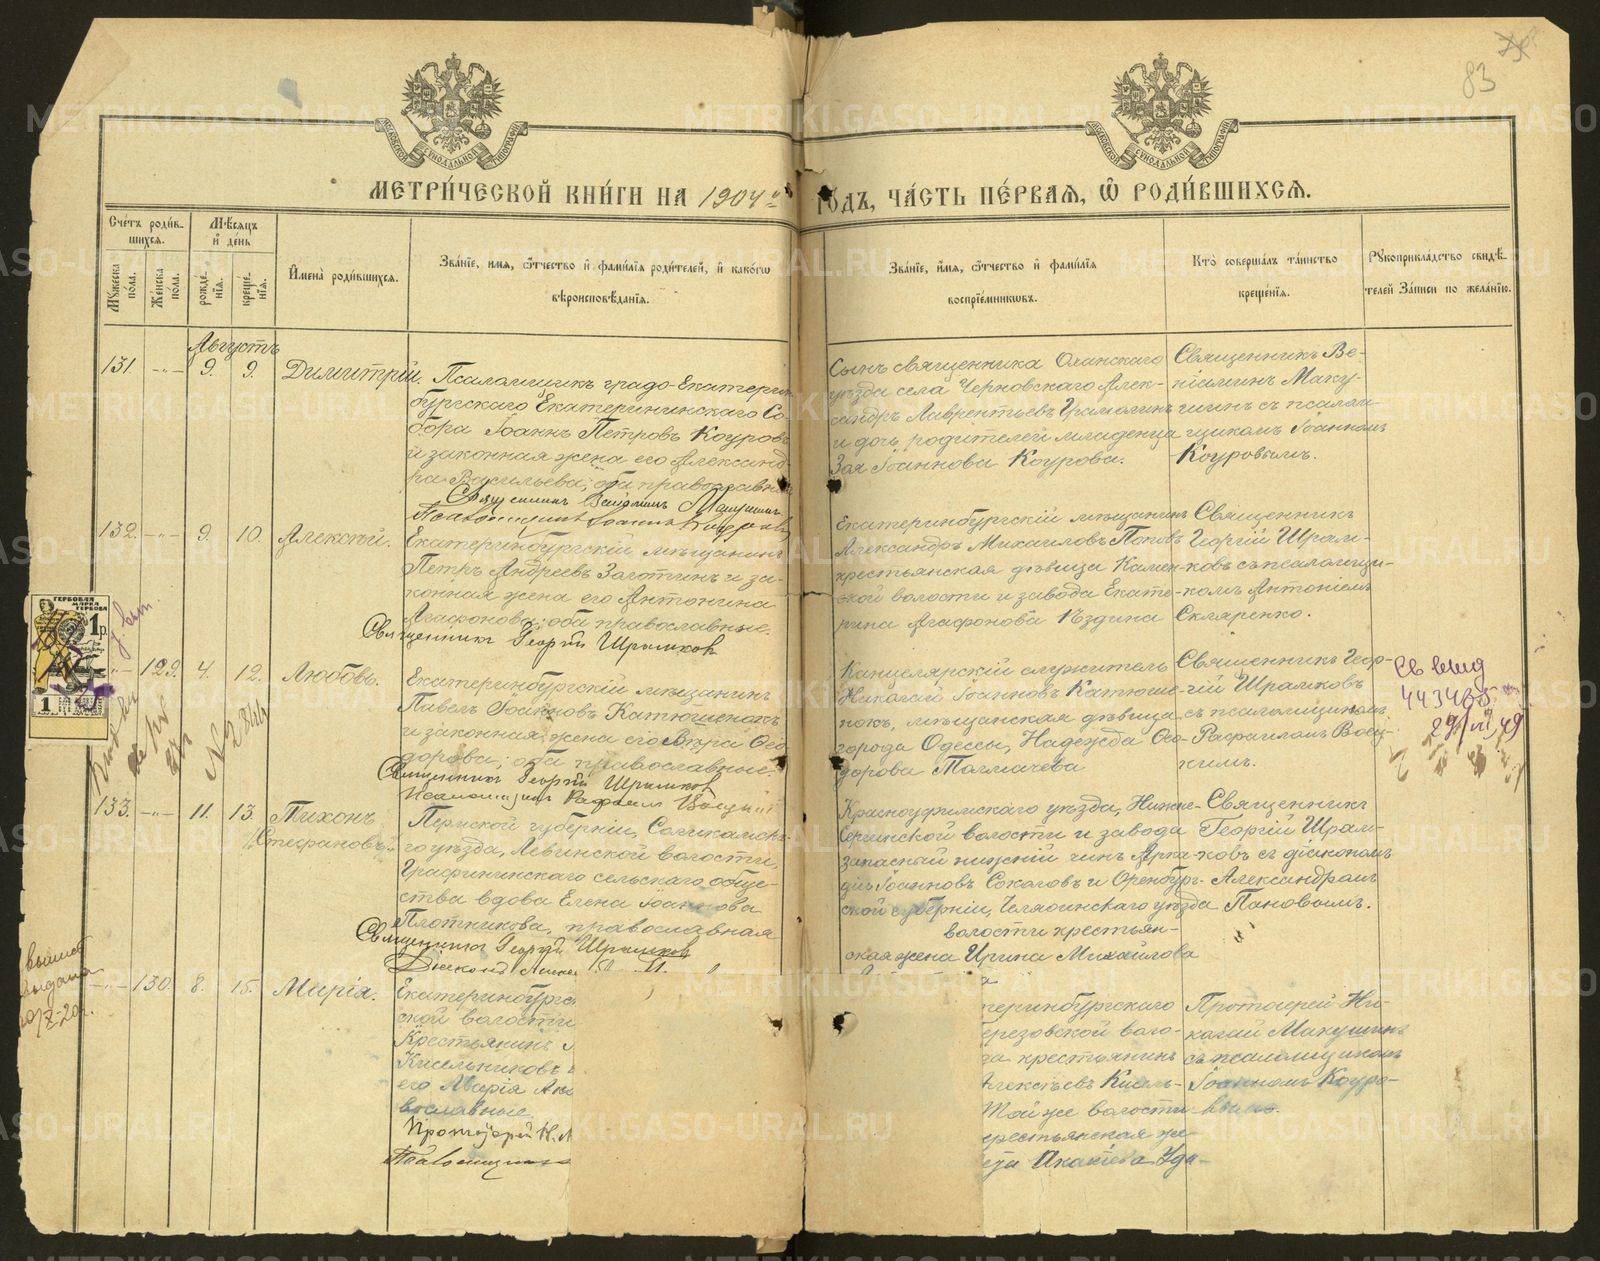 83
МОСКОВСКОЙ СѴНОДАЛЬНОЙ ТИПОГРАФІИ
МОСКОВСКОЙ СѴНОДАЛЬНОЙ ТИПОГРАФІИ
МЕТРИ́ЧЕСКОЙ КНИ́ГИ НА 1904 й ГОДЪ, ЧА́СТЬ ПЕ́РВАЯ, Ѿ РОДИ́ВШИХСЯ.
Счетъ роди́в-
шихся.
Мужеска по́ла.
Же́нска по́ла.
Мѣсяцъ
и де́нь
рожде́нія.
креще́нія.
Имена̀ роди́вшихся.
Зва́ніе, имя, о́тчество и фами́лія роди́телей, и како́гѡ
вѣроисповѣ́данія.
Зва́ніе, имя, о́тчество и фами́лія
воспріе́мниковъ.
Кто̀ соверша́лъ та́инство
креще́нія.
Рукоприкла́дство свидѣ́-
телей За́писи по жела́нію.
Августъ
131 -"- 9. 9. Димитрій.
Псаломщикъ градо-Екатерин-
бургскаго Екатерининскаго Со-
бора Іоаннъ Петровъ Коуровъ
и законная жена его Александ-
ра Васильева; оба православные
Священникъ Веніаминъ Макушинъ
Псаломщикъ Іоаннъ Коуровъ
Сынъ священника Оханскаго
уѣзда села Черновскаго Алек-
сандръ Лаврентьевъ Грамолинъ
и дочь родителей младенца
Зоя Іоаннова Коурова.
Священникъ Ве-
ніаминъ Маку-
шинъ съ псалом-
щикомъ Іоанномъ
Коуровымъ.
132. -"- 9. 10. Алексѣй.
Екатеринбургскій мѣщанинъ
Петръ Андреевъ Золотинъ и за-
конная жена его Антонина
Агафонова; оба православные.
Священникъ Георгій Шрамковъ
Екатеринбургскій мѣщанинъ
Александръ Михаиловъ Поповъ
крестьянская дѣвица Камен-
ской волости и завода Екате-
рина Агафонова Кздина
Священникъ
Георгій Шрам-
ковъ съ псаломщи-
комъ Антоніемъ
Скляренко.
ГЕРБОВАЯ
МАРКА
1 р.
1
-"- 129. 4. 12. Любовь.
Екатеринбургскій мѣщанинъ
Павелъ Іоанновъ Катюшенокъ
и законная жена его Вѣра Ѳео-
дорова; оба православные.
Священникъ Георгій Шрамковъ
Псаломщикъ Рафаилъ Воецкій
Канцелярскій служитель
Николай Іоанновъ Катюше-
нокъ, мѣщанская дѣвица
города Одессы, Надежда Ѳео-
дорова Толмачева
Священникъ Геор-
гій Шрамковъ
съ псаломщикомъ
Рафаиломъ Воец-
кимъ.
443465
29/VII 49
N 2844
133. -"- 11. 13. Тихонъ
(Стефановъ).
Пермской губерніи, Соликамска-
го уѣзда, Левинской волости,
Графининскаго сельскаго обще-
ства вдова Елена Іоаннова
Плотникова, православная
Священникъ Георгій Шрамковъ
Діаконъ
Красноуфимскаго уѣзда, Нижне-
Сергинской волости и завода
запасный нижній чинъ Арка-
дій Іоанновъ Соколовъ и Оренбург-
ской губерніи, Челябинскаго уѣзда
волости крестьян-
ская жена Ирина Михайлова
Священникъ
Георгій Шрам-
ковъ съ діакономъ
Александромъ
Пановымъ.
выдана
-"- 130. 8. 15. Марія.
Екатеринбургс
ской волости
Крестьянинъ
Кисельниковъ
его Марія
вославные.
Протоіерей Н. М
Псаломщикъ
теринбургскаго
ерезовской воло-
да крестьянинъ
Алексѣевъ Кисель-
той же волости
крестьянская же-
Акакіева Уда-
Протоіерей Ни-
колай Макушинъ
съ псаломщикомъ
Іоанномъ Коуро-
вымъ.